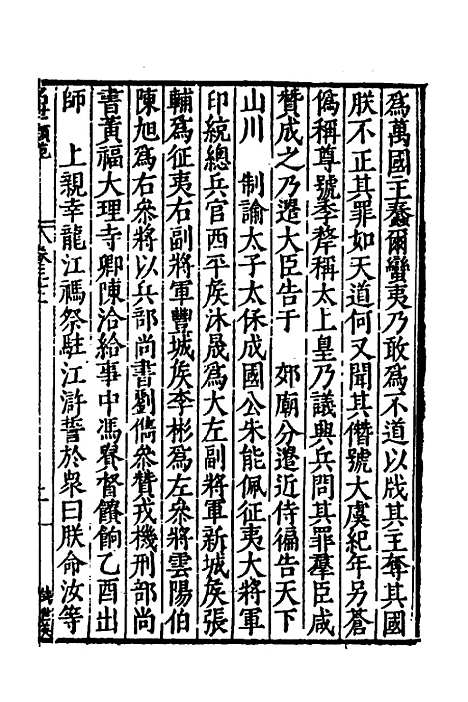 爲萬國王蠢爾蠻夷乃敢爲不道以戕其王奪其國
朕不正其罪如天道何又聞其僭號大虞紀年另蒼
僞稱尊號季犛稱太上皇乃議興兵問其罪羣臣咸
贊成之乃遣大臣告于　郊廟分遣近侍徧告天下
山川　制諭太子太保成國公朱能佩征夷大將軍
印統總兵官西平侯沐晟爲大左副將軍新城侯張
輔爲征夷右副將軍豐城侯李彬爲左參將雲陽伯
陳旭爲右參將以兵部尚書劉儁參贊戎機刑部尚
書黃福大理寺卿陳洽給事中馮貴督饋餉乙酉出
師　上親幸龍江禡祭駐江滸誓於衆曰朕命汝等